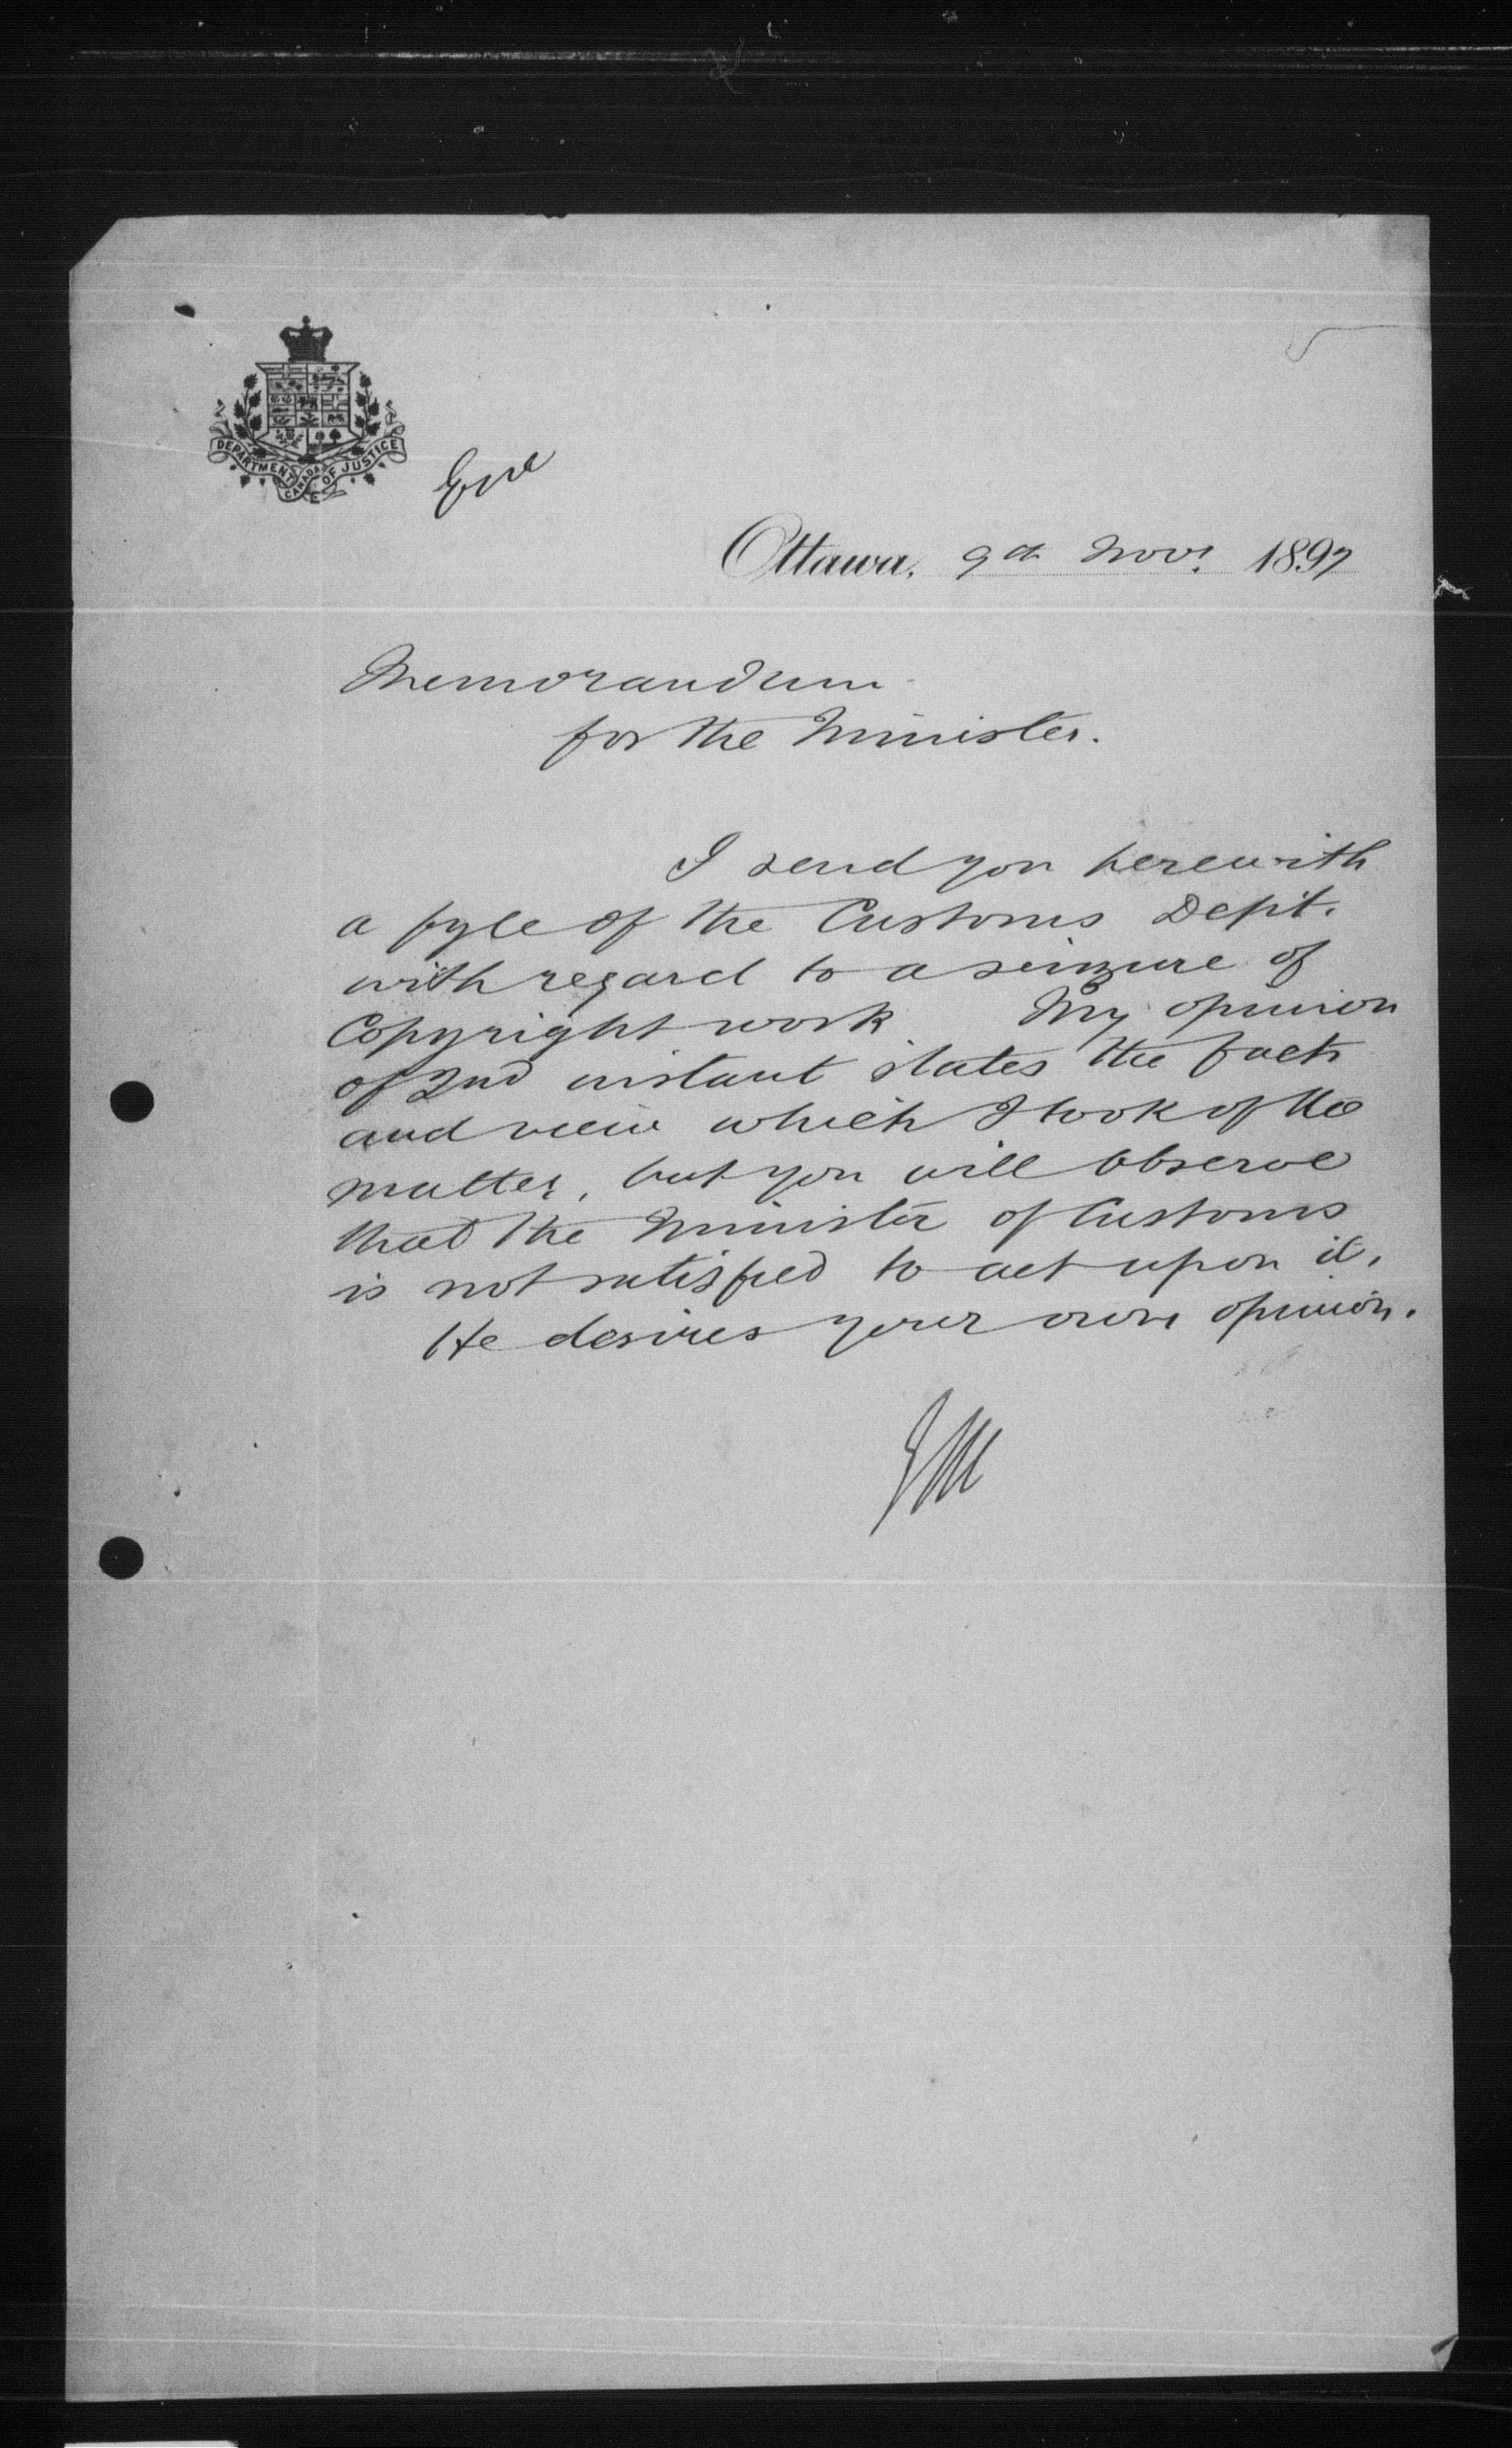 DEPARTMENT OF JUSTICE
CANADA
Ottawa, 9th Novr. 1897
Memorandum
for the Minister.
I send you herewith
a fyle of the Customs Dept.
with regard to a seizure of
Copyright work My opinion
of 2nd instant states the facts
and view which I took of the
matter, but you will observe
that the Minister of Customs
is not satisfied to act upon it.
He desires your own opinion.